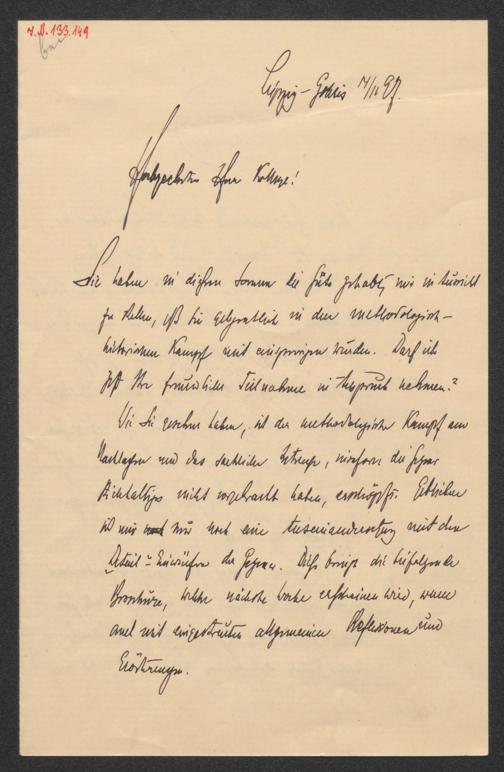 I. N. 133.149
Leipzig–Gohlis 7/11 97.
Hochgeehrter Herr Kollege!
Sie haben in diesem Sommer die Güte gehabt, mir in Aussicht
zu stellen, daß Sie gelegentlich in den methodologisch-
historischen Kampf mit eingreifen würden. Darf ich
jetzt Ihre freundliche Teilnahme in Anspruch nehmen?
Wie Sie gesehen haben, ist der methodologische Kampf am
Nachlassen und das sachliche Interesse, insofern die Gegner
Stichhaltiges nicht vorgebracht haben, erschöpft. Geblieben
ist mir nur noch eine Auseinandersetzung mit den
Detail-Einwürfen der Gegner. Dies bringt die beifolgende
Broschüre, welche nächste Woche erscheinen wird, wenn
auch mit eingestreuten allgemeinen Reflexionen und
Erörterungen.